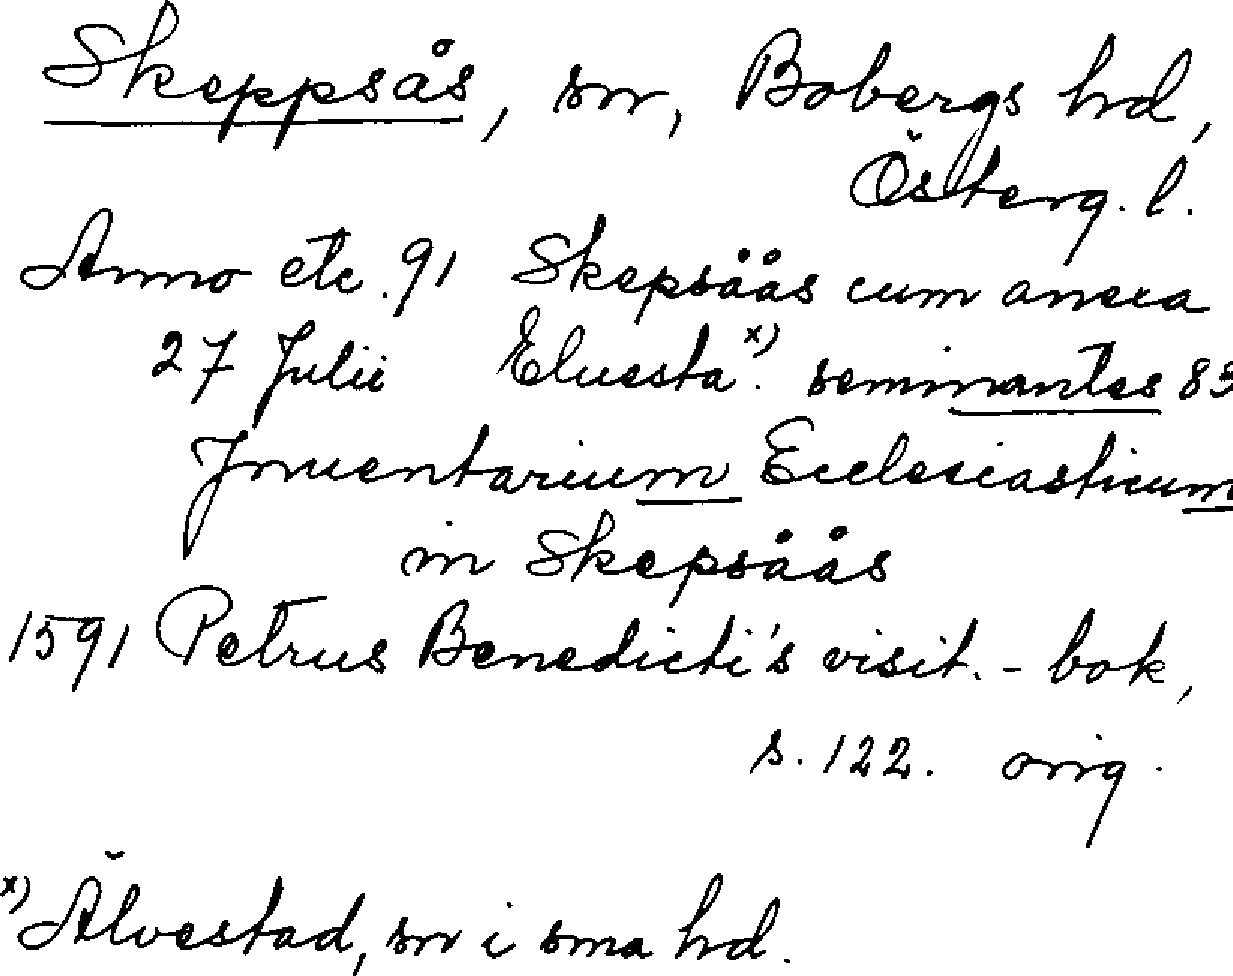 Skeppsås, sn, Bobergs hd,
Österg. l.
Anno etc. 91 Skepsåås cum anexa
27 Julii Eluesta x). seminantes 83
Jnuentarium Ecclesiasticum
in Skepsåås
1591 Petrus Benedicti's visit.-bok,
s. 122. orig.
x) Älvestad, sn i sma hd.